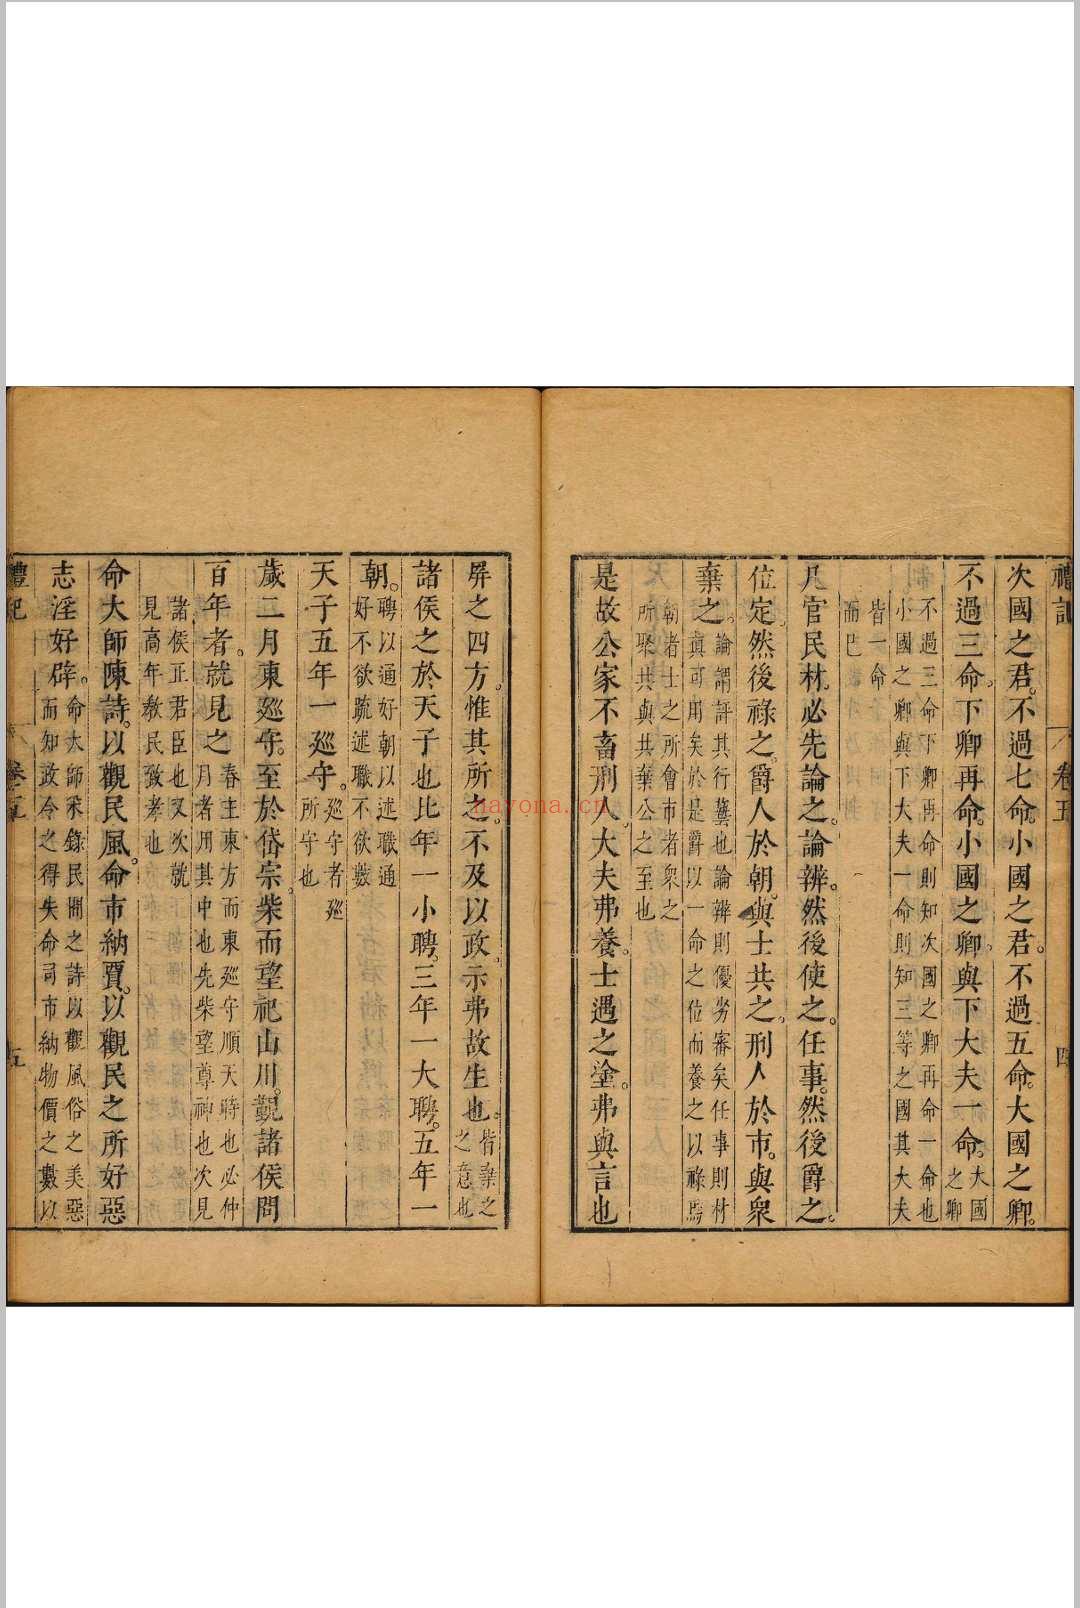 禮記 卷五 四
次國之君。不過七命。小國之君。不過五命。大國之卿。
不過三命。下卿再命。小國之卿。與下大夫一命。大國之卿
不過三命下卿再命則知次國之卿再命一命也
小國之卿與下大夫一命則知三等之國其大夫
皆一命
而巳
凡官民材。必先論之。論辨。然後使之。任事。然後爵之。
位定。然後祿之。爵人於朝。與士共之。刑人於市。與衆
棄之。論謂評其行藝也論辨則優劣審矣任事則材
眞可用矣於是爵以一命之位而養之以祿焉
朝者士之所會市者衆之
所聚共與共弃公之至也
是故公家不畜刑人。大夫弗養。士遇之塗。弗與言也
屏之四方。惟其所之。不及以政。示弗故生也。皆棄之之意也
諸侯之於天子也比年一小聘。三年一大聘。五年一
朝。聘以通好朝以述職通
好不欲疏述職不欲數
天子五年一廵守。廵守者廵所守也
歲二月東廵守。至於岱宗。柴而望祀山川。覲諸侯問
百年者。就見之 春主東方而東廵守順天時也必仲
月者用其中也先柴望尊神也次見
諸侯正君臣也又次就
見高年教民致孝也
命大師陳詩。以觀民風。命市納賈。以觀民之所好惡
志淫好辟。命大師采錄民間之詩以觀風俗之美惡
而知政令之得失命司市納物價之數以
禮記 卷五 五
nayona.cn